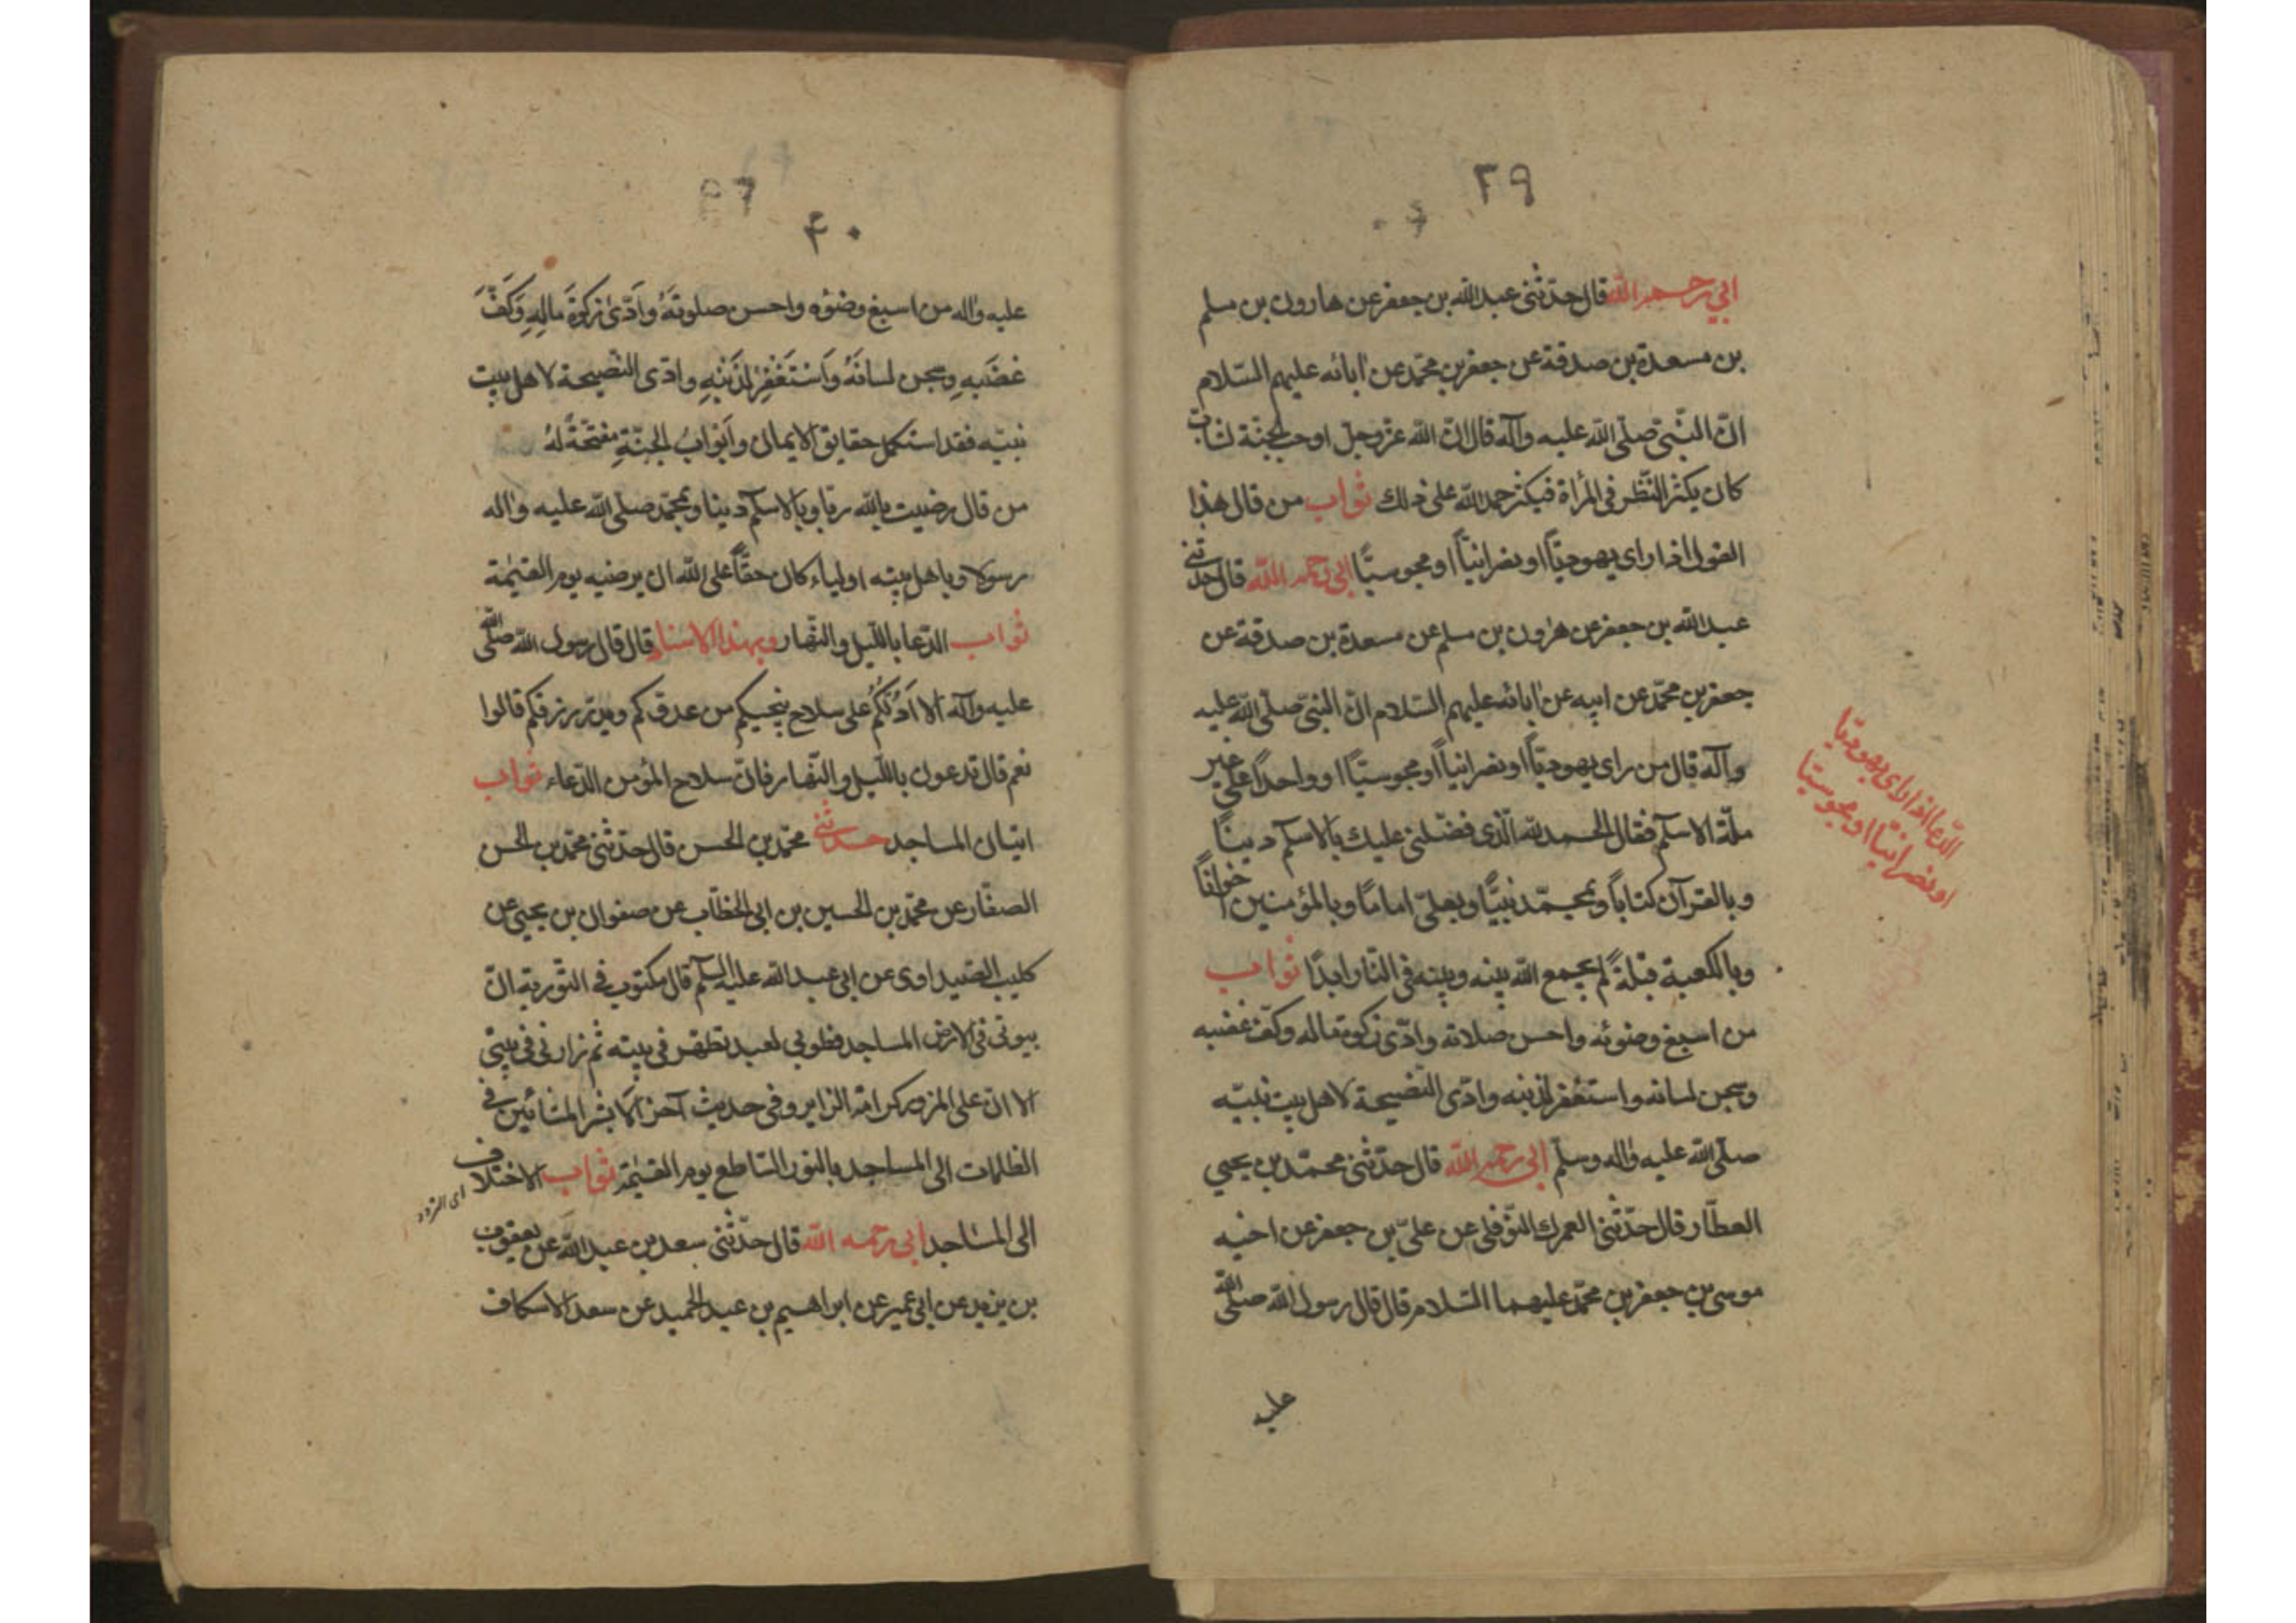 ٣٩
ابي رحمه الله قال حدّثنى عبد الله بن جعفر عن هارون بن مسلم
بن مسعدة بن صدقة عن جعفر بن محمّد عن اٰبائه عليهم السّلام
انّ النّبىّ صلّى الله عليه وآله قال انّ الله عزّ وجلّ اوجب الجنّة لشابّ
كان يكثر النّظر فى المرأة فيكثر حمد الله على ذلك ثواب من قال هذا
القول اذا راى يهوديّاً او نصرانيّاً او مجوسيّاً ابى رحمه الله قال حدّثنى
عبد الله بن جعفر عن هٰرون بن مسلم عن مسعدة بن صدقة عن
جعفر بن محمّد عن ابيه عن اٰبائه عليهم السّلام انّ النبىّ صلّى الله عليه
وآله قال من راى يهوديّاً او نصرانيّاً او مجوسيّاً او واحداً على غير
ملّة الاسلام فقال الحمد لله الّذى فضّلنى عليك بالاسلام ديناً
وبالقرآن كتاباً وبمحمّد نبيّاً وبعلىّ اماماً وبالمؤمنين اخواناً
وبالكعبة قبلةً لم يجمع الله بينه وبينه فى النّار ابدًا ثواب
من اسبغ وضوئه واحسن صلاته وادّى زكوة ماله وكفّ غضبه
وسجن لسانه واستغفر لذنبه وادّى النّصيحة لاهل بيت نبيّه
صلّى الله عليه واٰله وسلّم ابى رحمه الله قال حدّثنى محمّد بن يحيى
العطّار قال حدّثنى العمركى النّوفلى عن علىّ بن جعفر عن اخيه
موسى بن جعفر بن محمّد عليهما السّلام قال قال رسول الله صلّى الله
عليه
الدّعا اذا راى يهوديّا
او نصرانيّا او مجوسيّا
٤٠
عليه واٰله من اسبغ وضوُه واحسن صلوتَهُ واَدّىٰ زكوٰةَ مالِهِ وَكَفَّ
غضَبهِ وسجن لسانَهُ وَاسْتَغْفِرْ لِذَنْبِهِ وادّى النّصيحة لاهل بيت
نبيّه فقد استكمل حقايق الايمان وابوابُ الجنّةِ مفتّحةً لهُ
من قال رضيت بالله ربّا وبالاسلام دينا وبمحمّد صلى الله عليه واٰله
رسولا وباهل بيته اولياء كان حقّاً على الله ان يرضيه يوم القيٰمة
ثواب الدّعا بالليل والنّهار وبهذا الاسناد قال قال رسول الله صلّى الله
عليه وآله الا اَدُلُّكُمُ على سلاح ينجيكم من عدوّكم ويدرّ رزقكم قالوا
نعم قال تدعون بالليل والنّهار فانّ سلاح المؤمن الدّعاء ثواب
اتيان المساجد حدّثنى محمّد بن الحسن قال حدّثنى محمّد بن الحسن
الصفّار عن محمّد بن الحسين بن ابى الخطّاب عن صفوان بن يحيى عن
كليب الصّيداوى عن ابى عبد الله عليه السلام قال مكتوب فى التّورية انّ
بيوتى فى الارض المساجد فطوبى لعبد تطهّر فى بيته ثم زارنى فى بيتى
الا انّ على المزور كرامة الزاير وفى حديث آخر الا بشر المشّائين فى
الظلمات الى المساجد بالنور السّاطع يوم القيٰمة ثواب الاختلاف
الى المساجد ابى رحمه الله قال حدّثنى سعد بن عبد الله عن يعقوب
بن يزيد عن ابى عمير عن ابراهيم بن عبد الحميد عن سعد الاسكاف